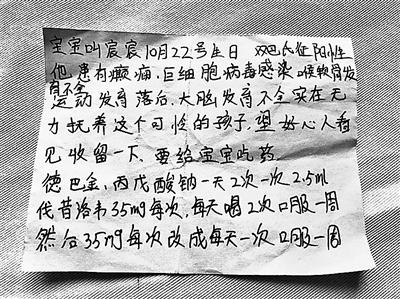 宝宝叫宸宸10月22号生日 双巴氏征阳性
他患有癫痫、巨细胞病毒感染 喉软骨发
育不全
运动发育落后、大脑发育不全实在无
力抚养这个可怜的孩子，望好心人看
见收留一下、要给宝宝吃药.
德巴金、丙戊酸钠一天2次一次2.5ml
代昔洛韦35mg每次,每天喝2次口服一周
然后35mg每次改成每天一次口服一周